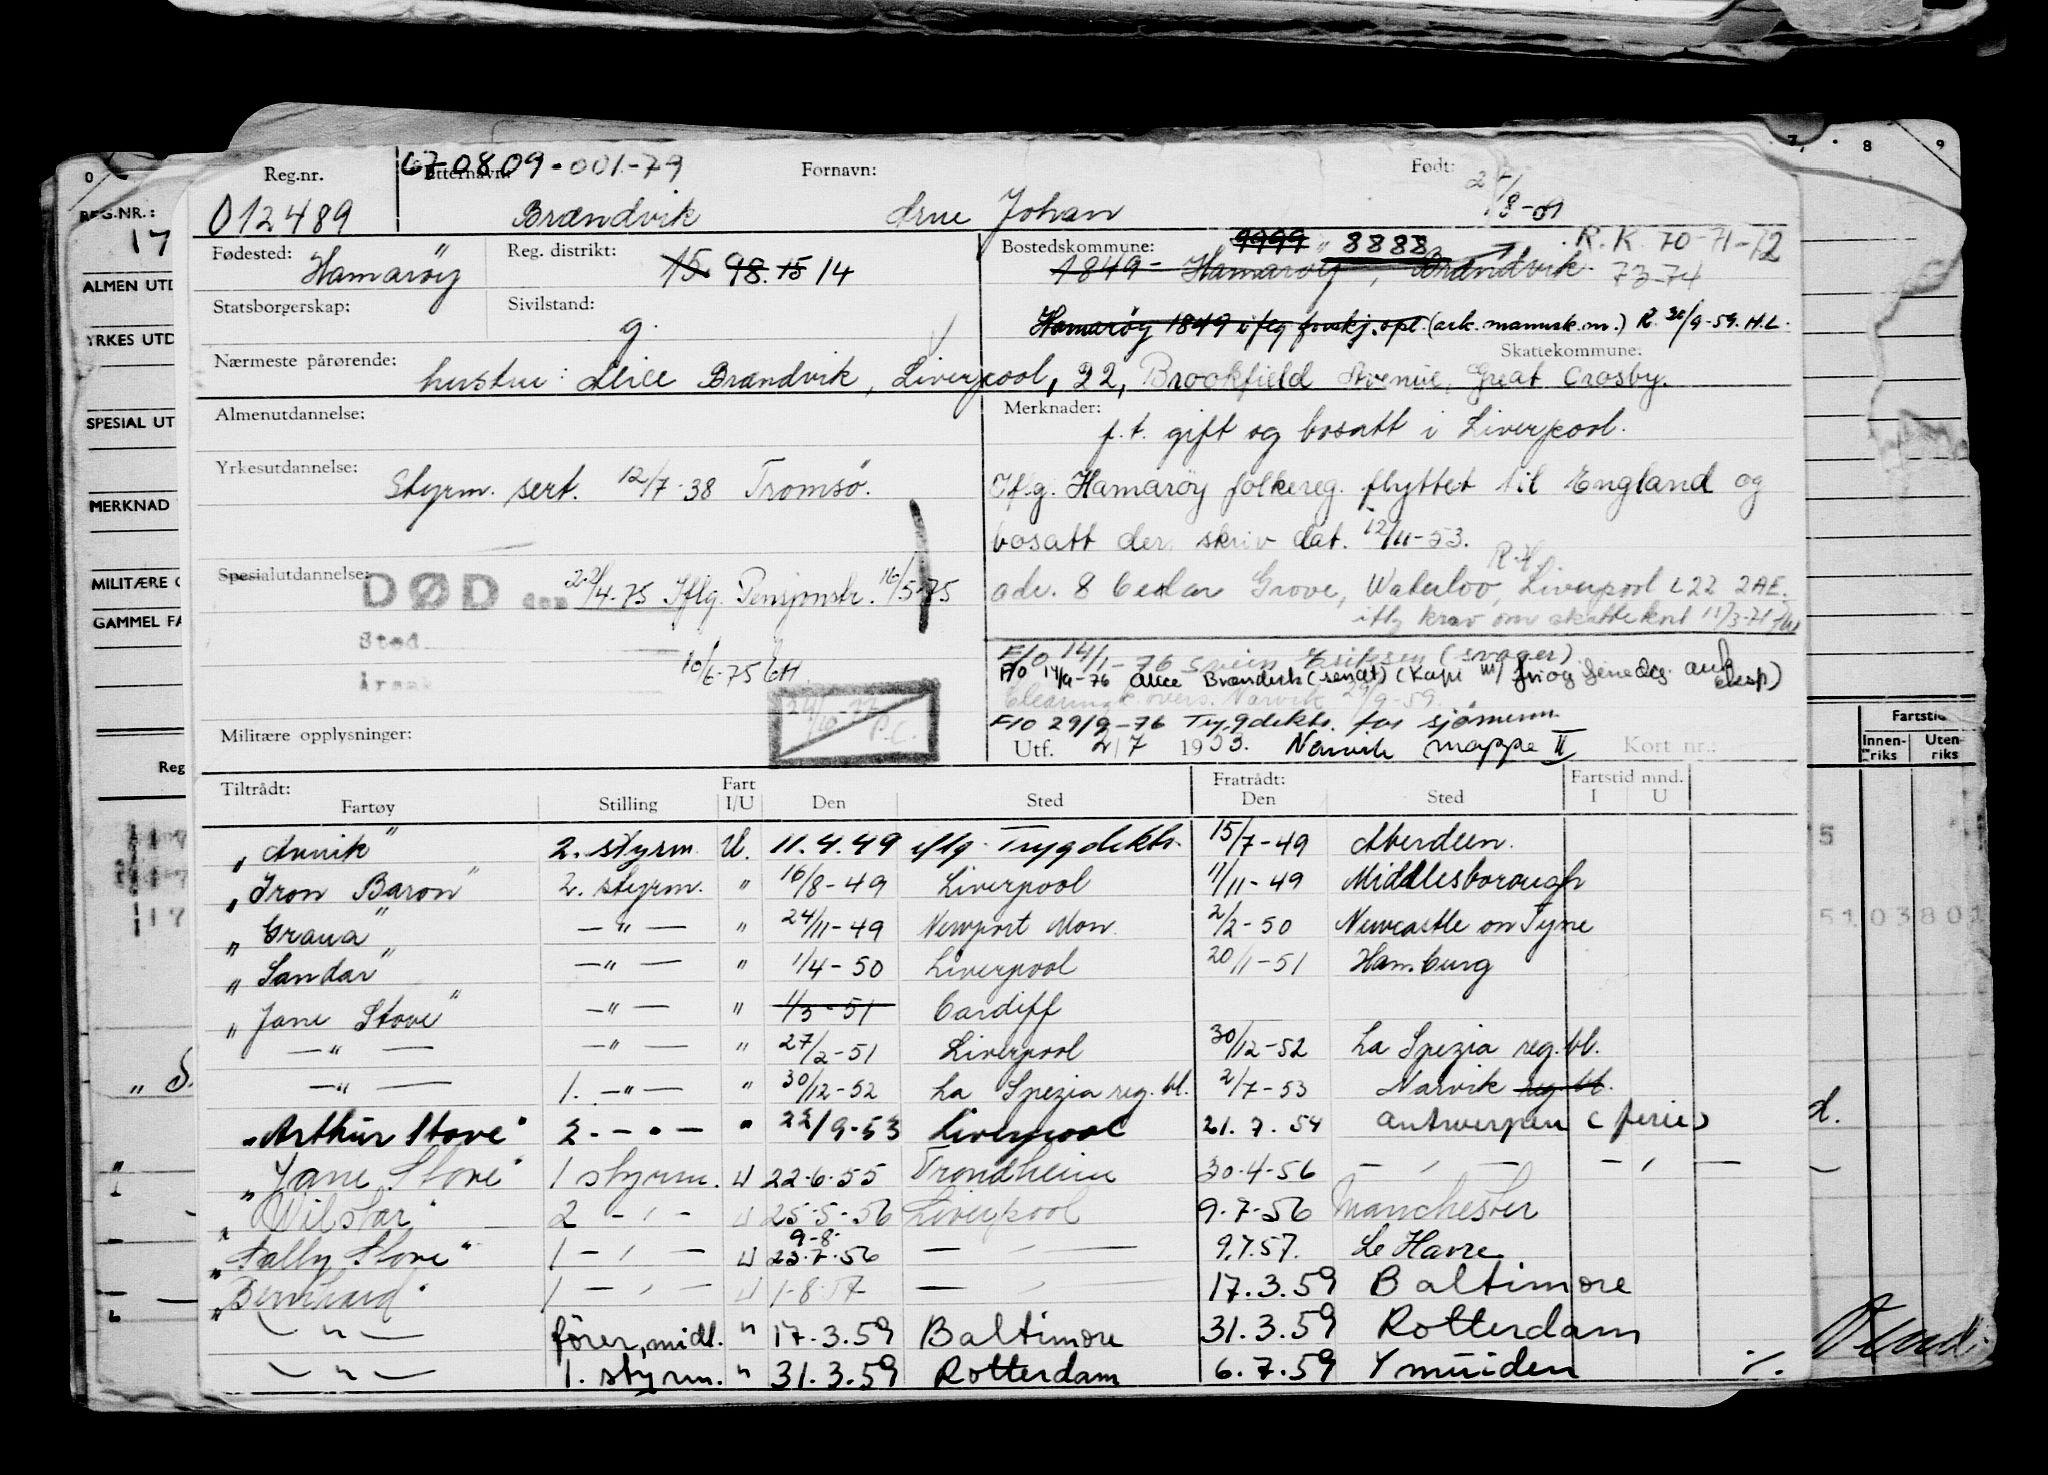 Reg.nr. Etternavn: 670809-001-79 Fornavn: Født:
012489 Brændvik Arne Johan 2/8-09
Fødested: Hamarøy Reg. distrikt: 15. 98. 15 14 Bostedskommune: 9999 8888 R.K. 70-71-72
1849 - Hamarøy, Brændvik. 73-74
Statsborgerskap: Sivilstand: g. Hamarøy 1849 iflg forskj. opl. (ark. mannsk. nr.) R. 30/9-59. H.L.
Skattekommune:
Nærmeste pårørende: hustru: Alice Brændvik, Liverpool, 22, Brookfield Avenue, Great Crosby.
Almenutdannelse: Merknader: f.t. gift og bosatt i Liverpool.
Yrkesutdannelse: Styrm. sert. 12/7-38 Tromsø.
Iflg. Hamarøy folkereg. flyttet til England og
bosatt der, skriv dat. 12/11-53.
R.K.
Spesialutdannelse: DØD den 22/4-75 Iflg. Pensjonstr. 16/5-75
adr. 8 Cedar Grove, Waterloo, Liverpool L22 2AE.
Sted iflg krav om skattekort 11/3-71
Årsak 10/6-75 GH
F/O 14/1-76 Svein Eriksen (svoger)
F/O 14/9-76 Alice Brændvik
Clearing k. overs. Narvik 29/9-59.
F/O 29/9-76 Trygdektr. for sjømenn
P.C.
Militære opplysninger: Utf. 2/7 1953. Narvik mappe II Kort nr.:
Tiltrådt: Fratrådt: Fartstid mnd.
Fartøy Stilling Fart I/U Den Sted Den Sted I U
"Annik" 2. styrm. U. 11.4.49 iflg. Trygdektr. 15/7-49 Aberdeen.
"Iron Baron" 2. styrm. " 16/8-49 Liverpool 11/11-49 Middlesborough
"Grana" —"— " 24/11-49 Newport Mon. 2/2-50 Newcastle on Tyne
"Sandar" —"— " 1/4-50 Liverpool 20/1-51 Hamburg
"Jane Stove" —"— " 1/3-51 Cardiff
—"— —"— " 27/2-51 Liverpool 30/12-52 La Spezia reg.bl.
—"— 1. —"— " 30/12-52 La Spezia reg. bl. 2/7-53 Narvik reg. bl.
"Arthur Stove" 2. —"— " 22/9-53 Liverpool 21.7.54 Antwerpen (ferie)
"Jane Stove" 1 styrm. U 22.6.55 Trondheim 30.4-56 —"— —"—
"Wilstar" 2 —"— U 25-5-56 Liverpool 9.7-56 Manchester
9-8-
"Sally Stove" 1 —"— U 23.7.56 —"— 9.7.57. Le Havre
"Bernhard" 1 —"— U 1-8-57 —"— 17.3.59 Baltimore
—"— fører, midl. " 17.3.59 Baltimore 31.3.59 Rotterdam
—"— 1. styrm. " 31.3.59 Rotterdam 6.7.59 Ymuiden ./.
0 7 8 9
REG.NR.:
17
ALMEN UTD
YRKES UTD
SPESIAL UT
MERKNAD
MILITÆRE
GAMMEL FA
Reg
Fartstid
Innen-riks Uten-riks
5103801